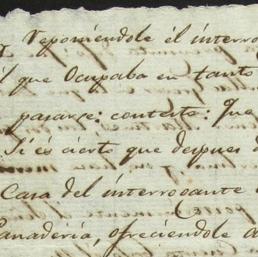 Reponiendole él interro
que Ocupaba en tanto
pasarse: contesto: Que
Sí és cierto que despues
Casa del interrogante
Panaderia, ofreciendole